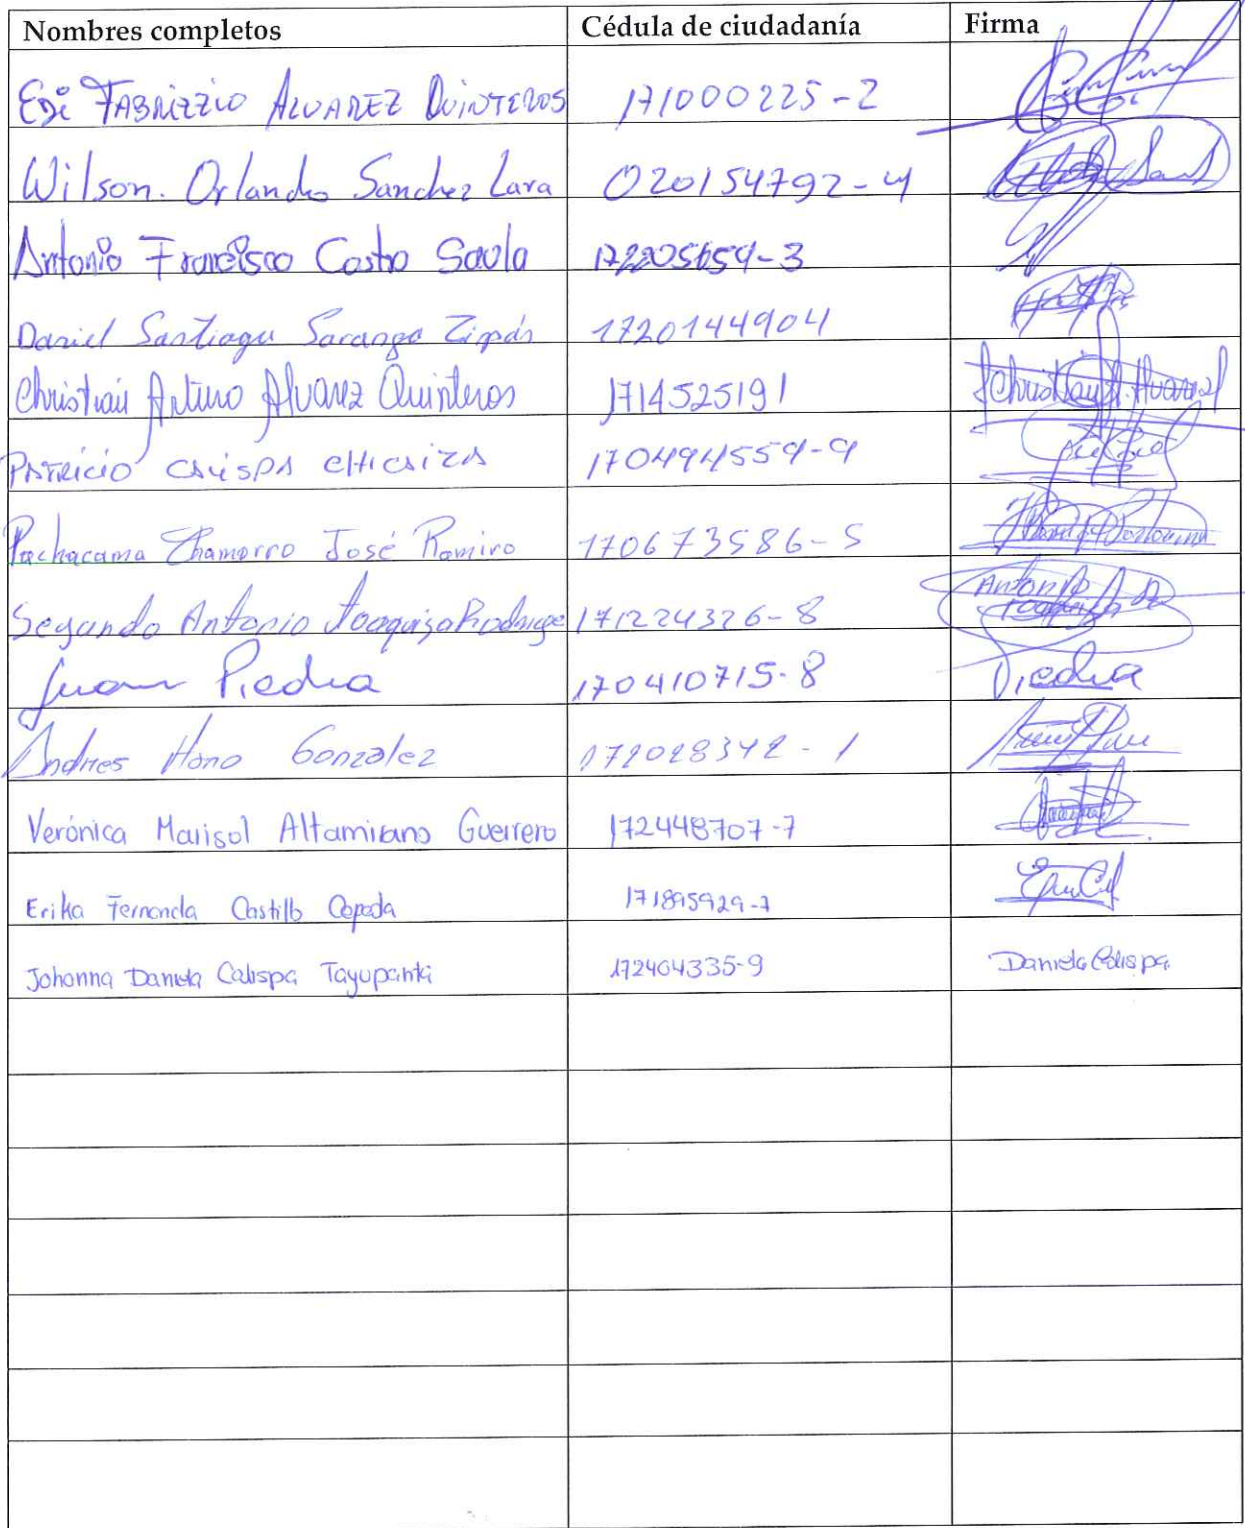 Nombres completos Cédula de ciudadanía Firma
Edi FABRIZZIO ALVAREZ QUINTEROS 171000225-2
Wilson. Orlando Sanchez Lara 020154792-4
Antonio Francisco Castro Saula
Daniel Santiago Sarango 1720144904
Christian Arturo Alvarez Quinteros 1714525191 Christian A. Alvarez
PATRICIO
Pachacama Chamorro José Ramiro 170673586-5
Segundo Antonio Toaquiza Rodrigue 171224326-8 Antonio
Juan Piedra 170410715-8 Piedra
Andres Haro Gonzalez 172028342-1
Verónica Marisol Altamirano Guerrero 172448707-7
Erika Fernanda Castillo Cepeda 171895929-7
Johanna Daniela Calispa Tayupanta 172404335-9 Daniela Calispa